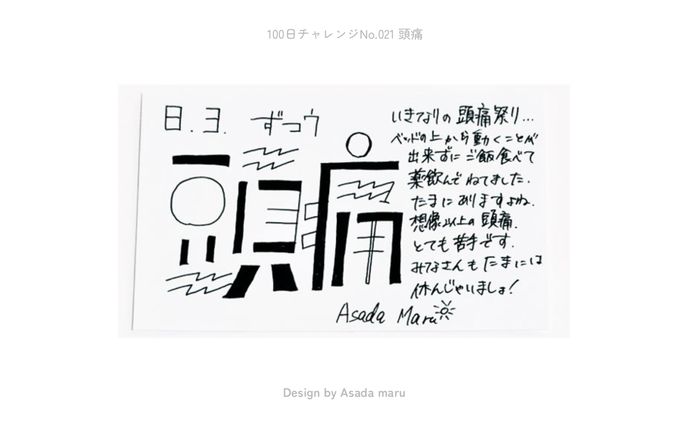 100日チャレンジNo.021 頭痛
日.ヨ. ずつウ
頭痛
いきなりの 頭痛祭り...
ベッドの上から動くことが
出来ずに ご飯食べて
薬飲んで ねてました.
たまに ありますよね.
想像以上の 頭痛.
とても 苦手です.
みなさんも たまには
休んじゃいましょ!
Asada Maru
Design by Asada maru